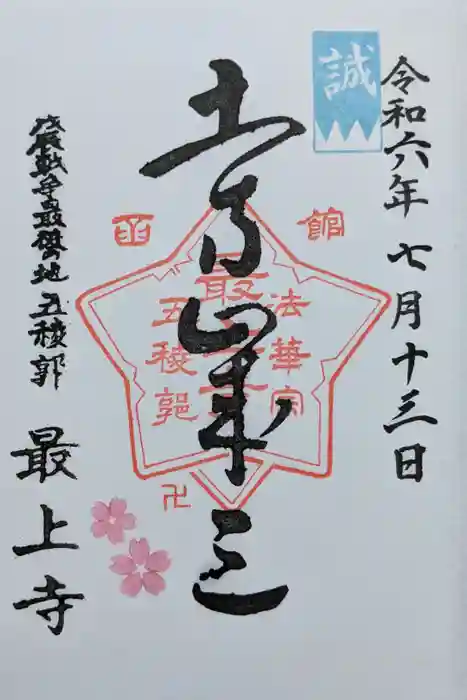 誠
令和六年七月十三日
土方歳三
函館
法華宗
最上寺
五稜郭
卍
戊辰戦争最後の地 五稜郭
最上寺